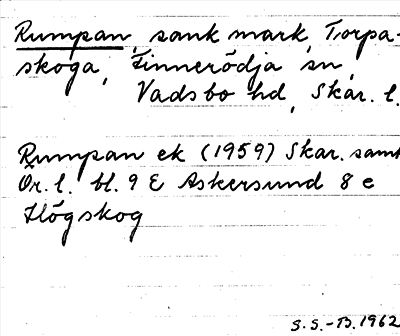 Rumpan, sank mark, Torpa-
skoga, Finnerödja sn,
Vadsbo hd, Skar. l.
Rumpan ek (1959) Skar. samt
Ör. l. bl. 9 E Askersund 8 e
Högskog
S.S.-B. 1962